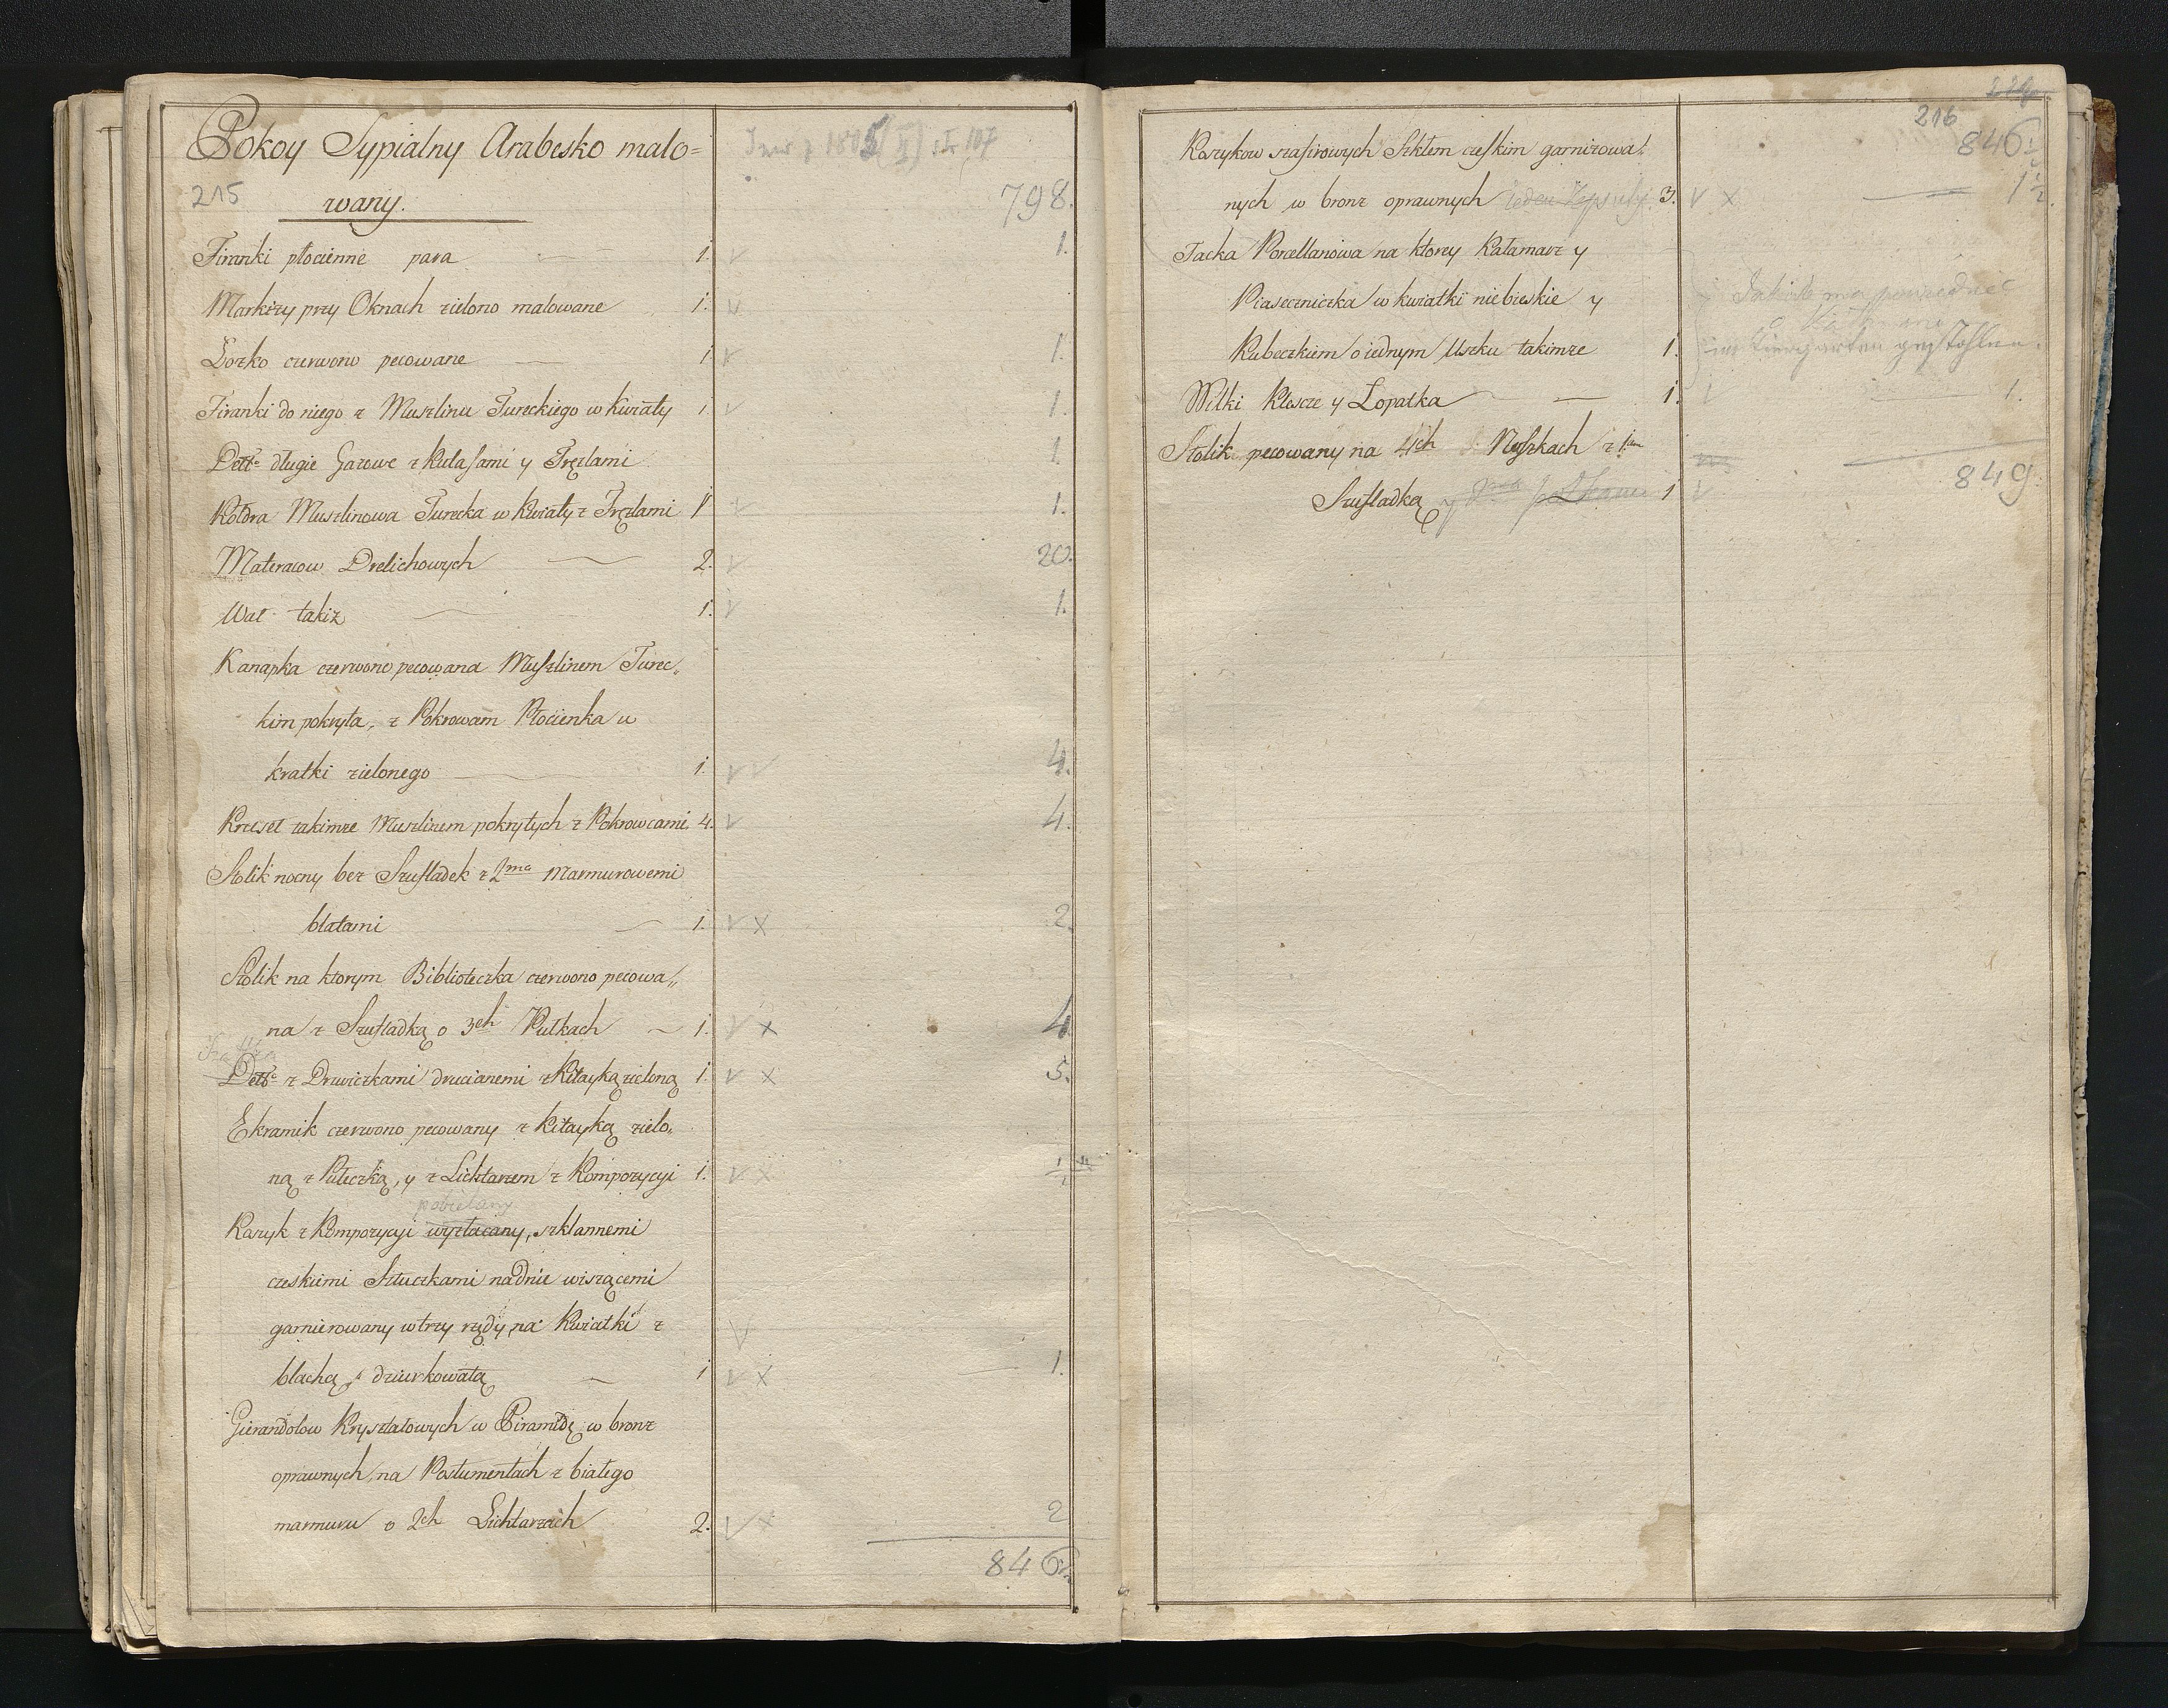 Pokoy Sypialny Arabesko malo=
215 wany. 798.
Firanki płocienne para 1. 1.
Markizy przy Oknach zielono malowane 1.
Łozko czerwono pecowane 1 1.
Firanki do niego z Muszlinu Tureckiego w Kwiaty 1 1.
Detto długie Gazowe z Kutasami y Fręzlami 1.
Kołdra Muszlinowa Turecka w Kwiaty z Fręzlami 1 1.
Materacow Drelichowych 2. 20.
Wał takiż 1. 1.
Kanapka czerwono pecowana Muszlinem Turec„
kim pokryta, z Pokrowcem Płocienka w
kratki zielonego 1. 4.
Krzeseł takimże Muszlinem pokrytych z Pokrowcami 4. 4.
Stolik nocny bez Szufladek z 2ma Marmurowemi
blatami 1. 2.
Stolik na ktorym Biblioteczka czerwono pecowa„
na z Szufladką o 3ch Pułkach 1. 4
Detto z Drzwiczkami drucianemi z Kitayką zieloną 1. 5.
Ekranik czerwono pecowany z Kitayką zielo„
ną z Pułeczką, y z Lichtarzem z Kompozycyi 1.
pobielany
Koszyk z Kompozycyi wyzłacany, szklannemi
czeskiemi Sztuczkami na dnie wiszącemi
garnierowany w trzy rzędy, na Kwiatki z
blachą dziurkowatą 1 1.
Gierandolow Krysztalowych w Piramidę w bronz
oprawnych, na Postumentach z białego
marmuru o 2ch Lichtarzach 2. 2
846½
216
Koszykow szafirowych Szkłem czeskim garnirowa= 846½
nych w bronz oprawnych jeden Zepsuty 3. 1½
Tacka Porcellanowa na ktorey Kałamarz y
Piaseczniczka w kwiatki niebieskie y
Kubeczkiem o iednym Uszku takimże 1.
im Tiergarten gestohlen.
Wilki Kleszcze y Łopatka 1. 1.
Stolik pecowany na 4ch Noszkach z 1ną
Szufladką 1 849.